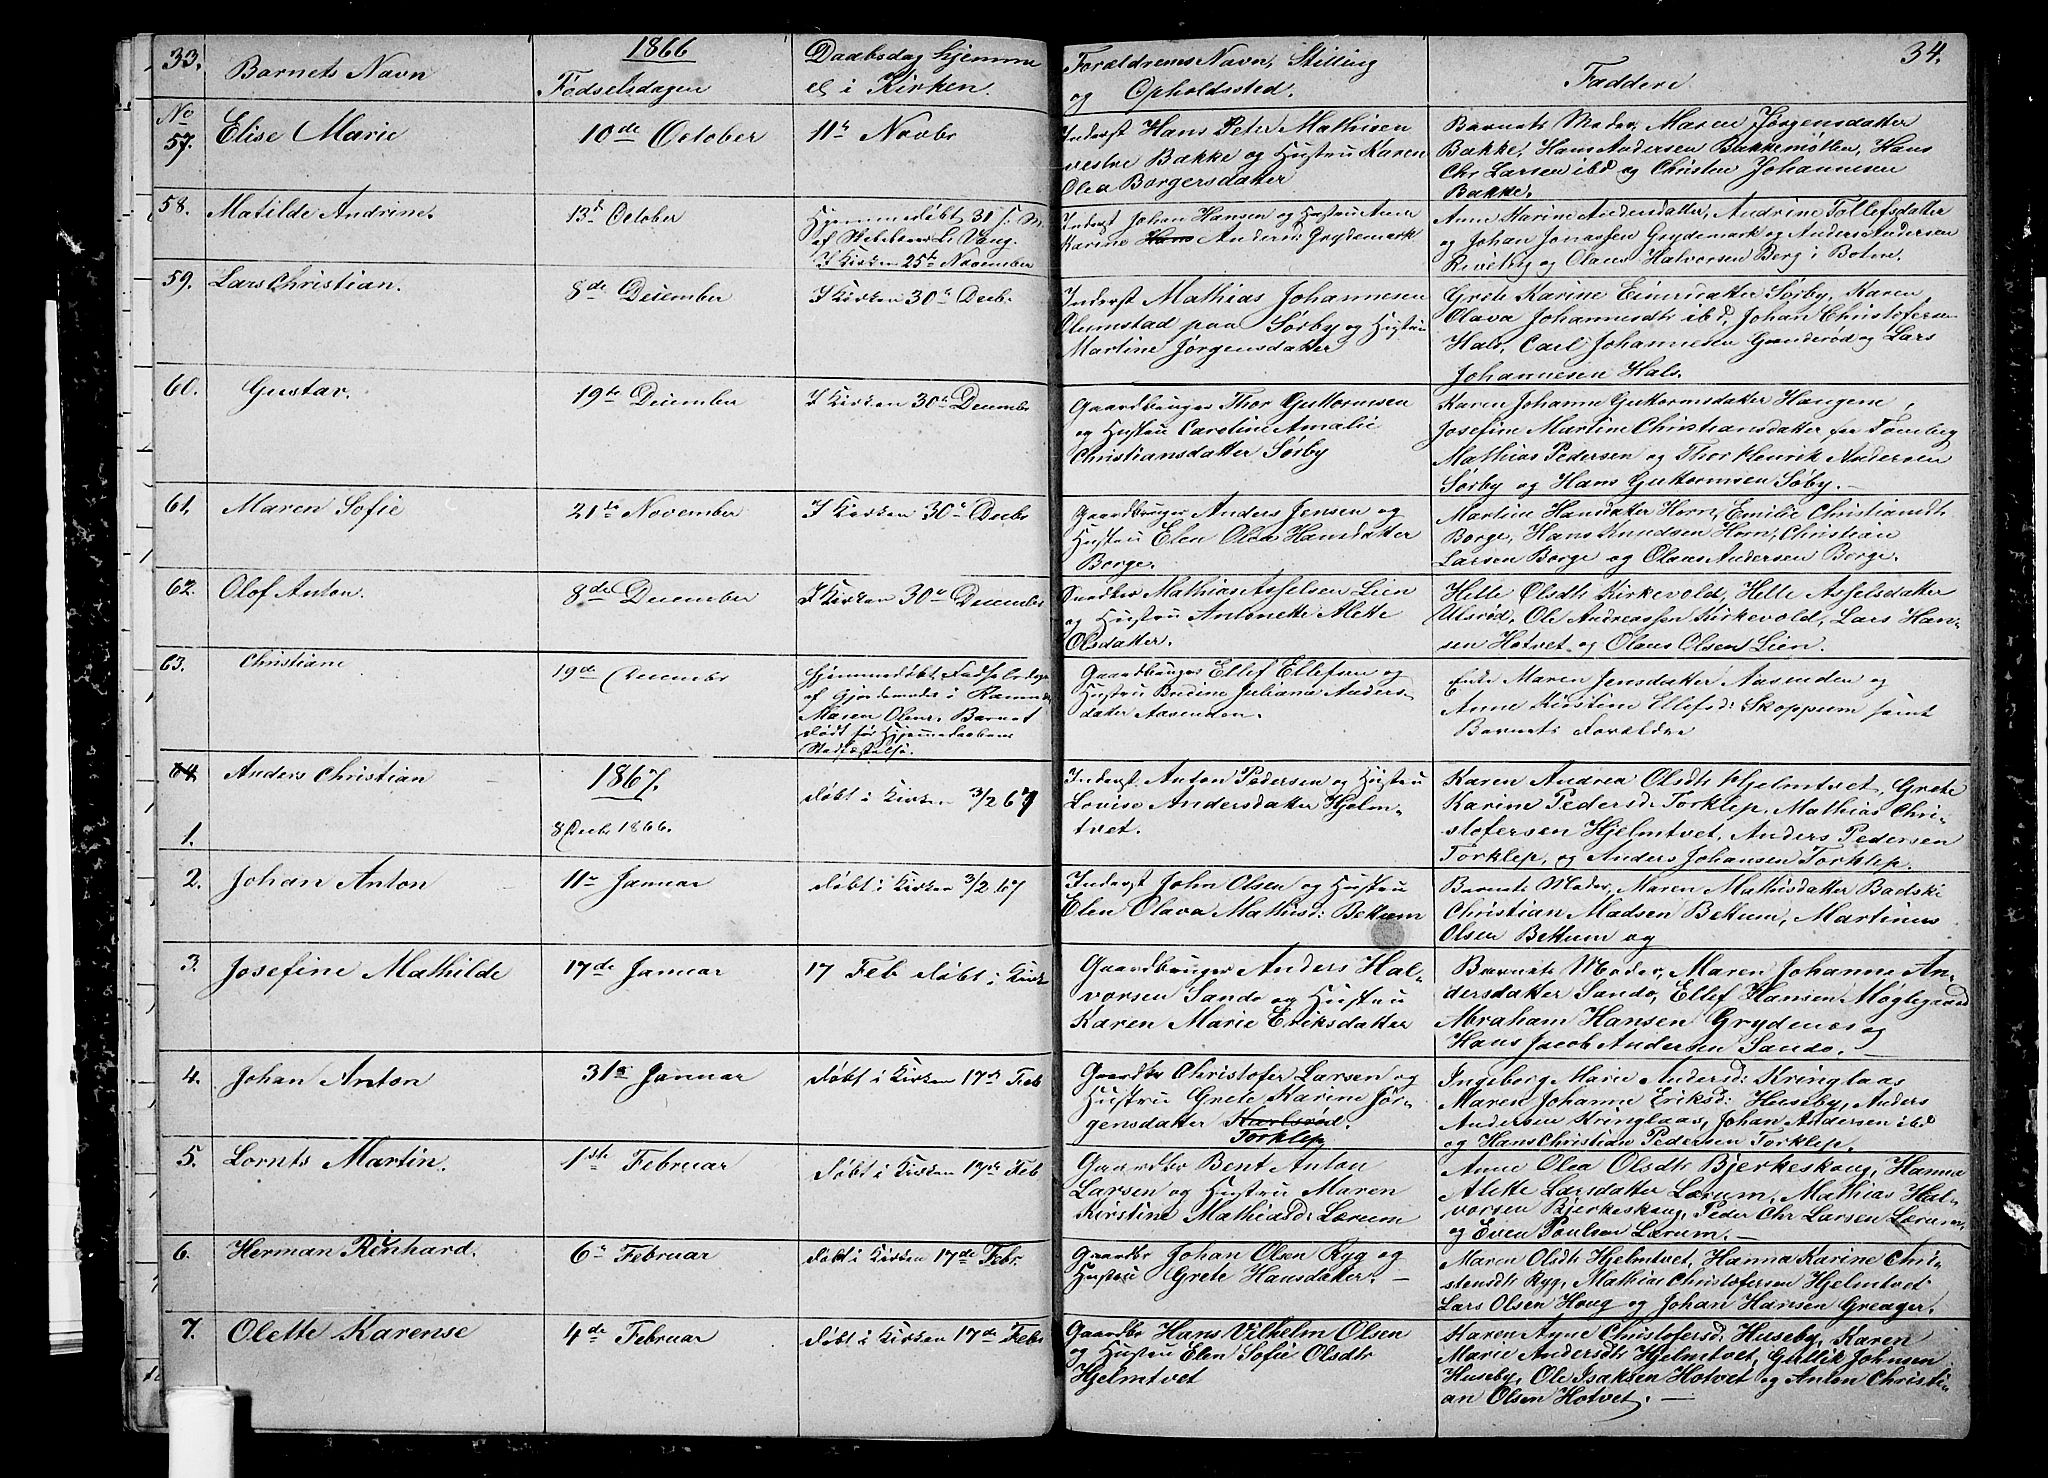 33.
Barnets Navn
1866
Fødselsdagen
Daabsdag hjemme
el i Kirken.
Forældrenes Navn, Stilling
og Opholdssted.
Faddere
34.
No
57.
Elise Marie
10de October
11te Novbr
Inderst Hans Peter Mathisen
vestre Bakke og Hustru Karen
Olea Borgersdatter
Barnets Moder, Maren Jørgensdatter
Bakke, Hans Andersen Bakkemøllen, Hans
Chr Larsen ibd og Christen Johannesen
Bakke.
58.
Matilde Andrine.
13de October
Hjemmedøbt 31
af L. Vang.
I Kirken 25de November
Inderst Johan Hansen og Hustru Anne
Karine Hans Andersd: Grydemark
Anne Marine Andersdatter, Andrine Tollefsdatter
og Johan Jonassen Grydemark og Anders Andersen
og Olaus Halvorsen Berg i Botne.
59.
Lars Christian.
8de December
I Kirken 30te Decbr.
Inderst Mathias Johannesen
Olumstad paa Sørby og Hustru
Martine Jørgensdatter
Grete Karine Einersdatter Sørby, Karen
Olava Johannesdtr ibd, Johan Christofersen
Hals, Carl Johannesen Gunderød og Lars
Johannesen Hals.
60.
Gustav.
19de December
I Kirken 30te Decembr
Gaardbruger Thor Guttormsen
og Hustru Caroline Amalie
Christiansdatter Sørby
Karen Johanne Guttormsdatter Haugene,
Josefine Martine Christiansdatter
Mathias Pedersen og Thor Henrik Andersen
Sørby og Hans Guttormsen Søby.
61.
Maren Sofie
21de November
I Kirken 30te Decbr
Gaardbruger Anders Jensen og
Hustru Elen Olea Hansdatter
Borge.
Martine Hansdatter Horn, Emilie Christiansdtr
Borge, Hans Knudsen Horn, Christian
Larsen Borge og Olaus Andersen Borge.
62.
Olof Anton.
8de December
I Kirken 30te December
Gaardbr Mathias Asselsen Lien
og Hustru Antonette Alette
Olsdatter.
Helle Olsdtr Kirkevold, Helle Asselsdatter
Ulsrød, Ole Andreassen Kirkevold, Lars Han-
sen Hotvet og Olaus Olsen Lien.
63.
Christiane
19de December
Hjemmedøbt Fødselsdagen
af Gjordemoder i
Maren Olsens. Barnet
dødt før Hjemmedaabens
Stadfæstelse.
Gaardbruger Ellef Ellefsen og
Hustru Bredine Juliane Anders-
datter Aasenden.
Enke Maren Jensdatter Aasenden og
Anne Kirstine Ellefsd: Skoppum samt
Barnets Forældre
64.
1.
Anders Christian
1867.
8 Decb. 1866.
døbt i Kirken 3/2 67
Inderst Anton Pedersen og Hustru
Lovise Andersdatter Hjelm-
tvet.
Karen Andrea Olsdtr Hjelmtvet, Grete
Karine Pedersd: Torklep, Mathias Chri-
stofersen Hjelmtvet, Anders Pedersen
Torklep, og Anders Johansen Torklep.
2.
Johan Anton
11te Januar
døbt i Kirken 3/2 67
Inderst John Olsen og Hustru
Elen Olava Mathisd: Bettum
Barnets Moder, Maren Mathisdatter Badski
Christian Madsen Bettum, Martinus
Olsen Bettum og
3.
Josefine Mathilde
17de Januar
17 Feb døbt i Kirk
Gaardbruger Anders Hal-
vorsen Sando og Hustru
Karen Marie Eriksdatter
Barnets Moder, Maren Johanne An-
dersdatter Sando, Ellef Hansen Møglegaard
Abraham Hansen Grydemos og
Hans Jacob Andersen Sando.
4.
Johan Anton
31te Januar
døbt i Kirken 17de Feb
Gaardbr Christofer Larsen og
Hustru Grete Karine Jør-
gensdatter Karlsrød.
Torklep
Ingeborg Marie Andersd: Kringlaas
Maren Johanne Eriksd: Huseby, Anders
Andersen Kringlaas, Johan Andersen ibd
og Hans Christian Pedersen Torklep.
5.
Lornts Martin.
1ste Februar
døbt i Kirken 17de Feb
Gaardbr Bent Anton
Larsen og Hustru Maren
Kirstine Mathiasd: Lørum
Anne Olea Olsdtr Bjerkeskoug, Hanna
Alette Larsdatter Lørum, Mathias Hal-
vorsen Bjerkeskoug, Peder Chr Larsen Lørum
og Even Poulsen Lørum.
6.
Herman Reinhard.
6te Februar
døbt i Kirken 17de Febr.
Gaardbr Johan Olsen Ryg og
Hustru Grete Hansdatter.
Maren Olsdtr Hjelmtvet, Hanna Karine Chri-
stensdtr Ryg, Mathias Christofersen Hjelmtvet
Lars Olsen Houg og Johan Hansen Greager.
7.
Olette Karense
4de Februar
døbt i Kirken 17de Febr
Gaardbr Hans Vilhelm Olsen
og Hustru Elen Sofie Olsdtr
Hjelmtvet
Karen Anne Christofersd: Huseby, Karen
Marie Andersdtr Hjelmtvet, Gullik Johnsen
Huseby, Ole Isaksen Hotvet og Anton Christi-
an Olsen Hotvet.